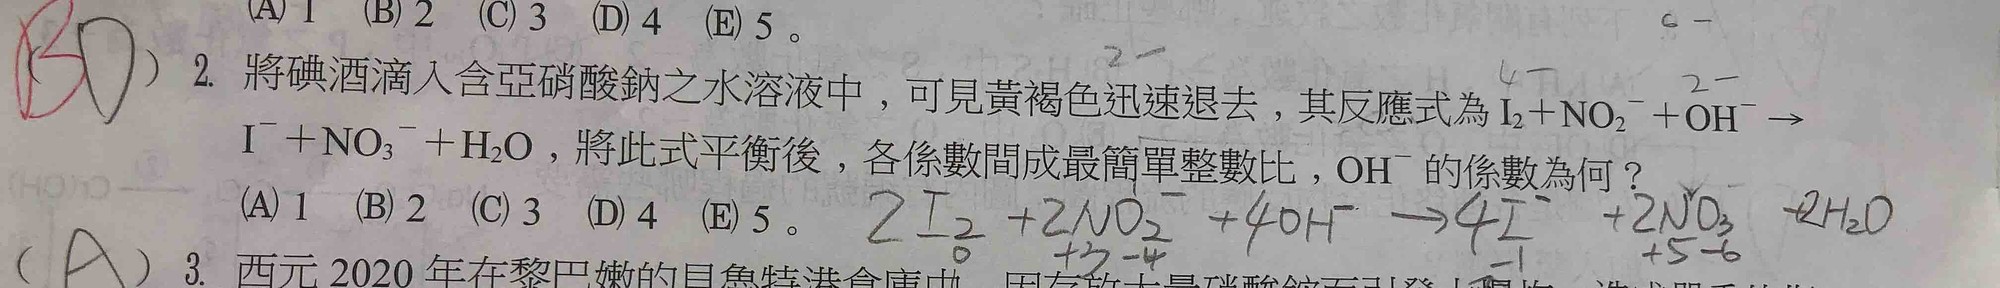 (A) 1 (B) 2 (C) 3 (D) 4 (E) 5。
6−
2−
4− 2−
(BD) 2. 將碘酒滴入含亞硝酸鈉之水溶液中，可見黃褐色迅速退去，其反應式為 I₂＋NO₂⁻＋OH⁻→
I⁻＋NO₃⁻＋H₂O，將此式平衡後，各係數間成最簡單整數比，OH⁻ 的係數為何？
(A) 1 (B) 2 (C) 3 (D) 4 (E) 5。 2I₂ + 2NO₂⁻ + 4OH⁻ → 4I⁻ + 2NO₃⁻ + 2H₂O
0 +3 −4 −1 +5 −6
(A) 3. 西元 2020 年在黎巴嫩的貝魯特港倉庫中，因存放大量硝酸銨而引發